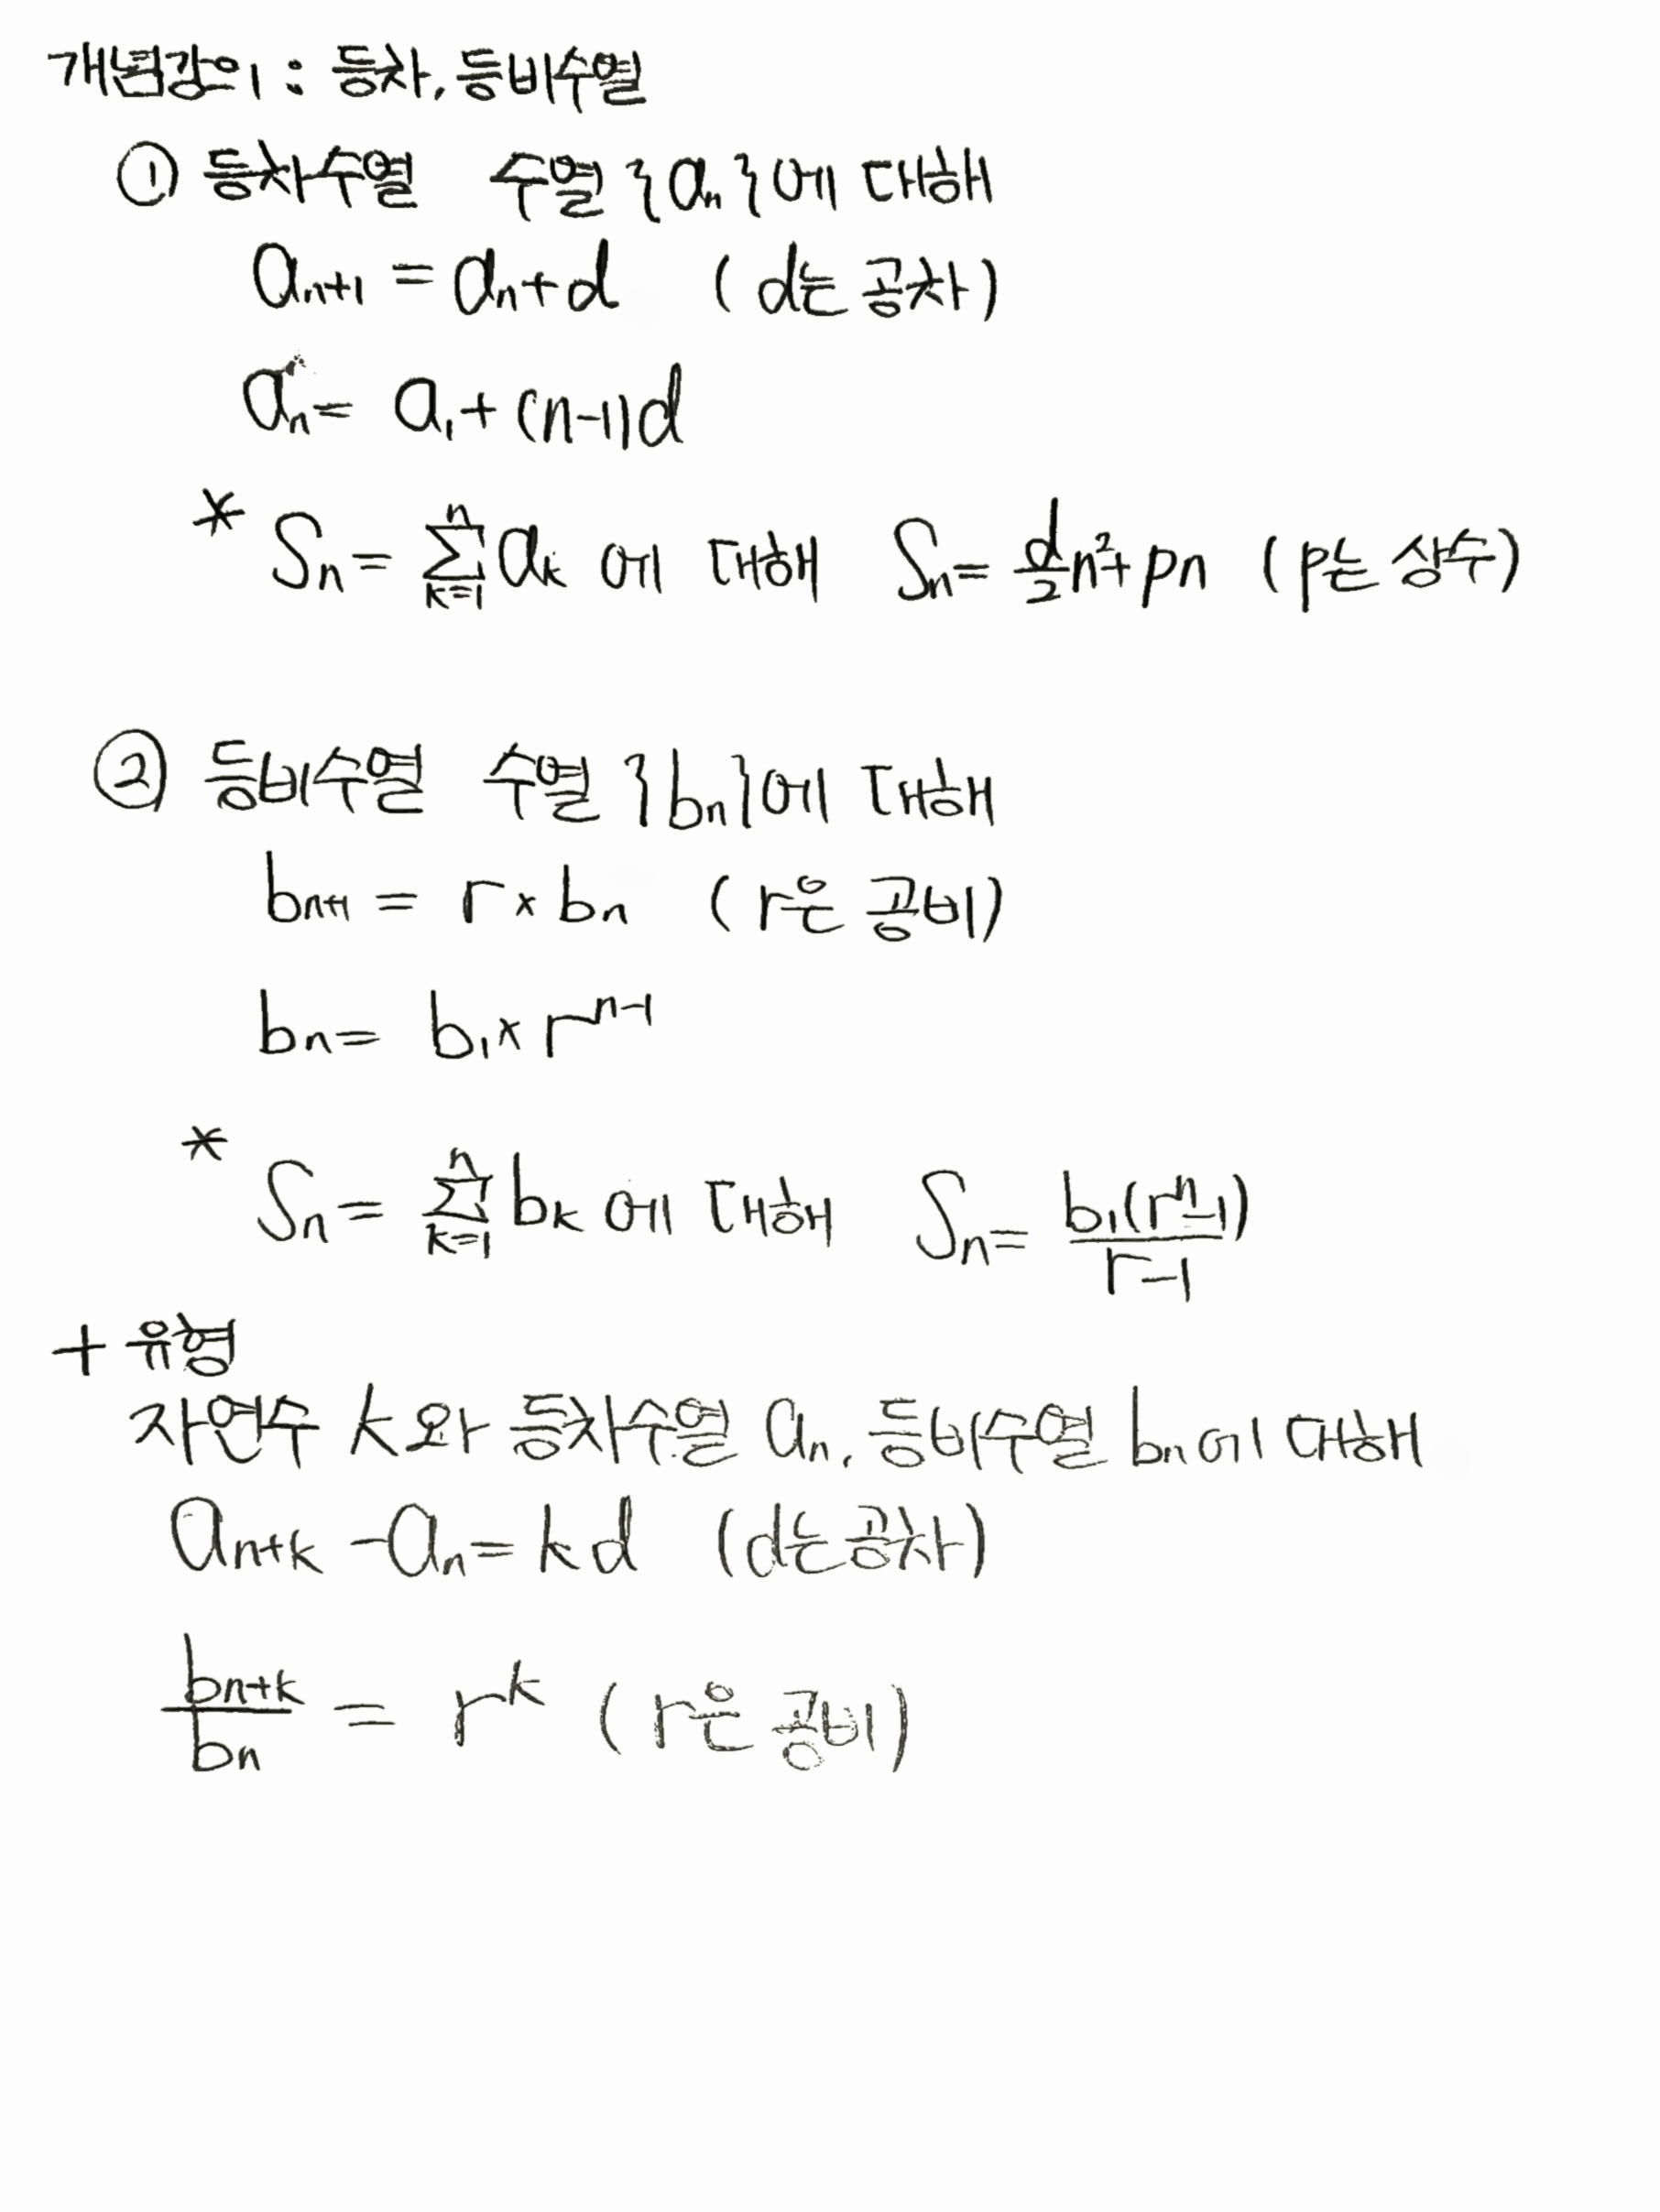 개념강의 : 등차, 등비수열
① 등차수열 수열 {aₙ}에 대해
aₙ₊₁ = aₙ+d (d는 공차)
aₙ = a₁+(n-1)d
* Sₙ = ∑ₖ₌₁ⁿ aₖ 에 대해 Sₙ = d/2 n²+pn (p는 상수)
② 등비수열 수열 {bₙ}에 대해
bₙ₊₁ = r×bₙ (r은 공비)
bₙ = b₁×rⁿ⁻¹
* Sₙ = ∑ₖ₌₁ⁿ bₖ 에 대해 Sₙ = b₁(rⁿ-1)/r-1
+ 유형
자연수 k와 등차수열 aₙ, 등비수열 bₙ에 대해
aₙ₊ₖ - aₙ = kd (d는 공차)
bₙ₊ₖ/bₙ = rᵏ (r은 공비)